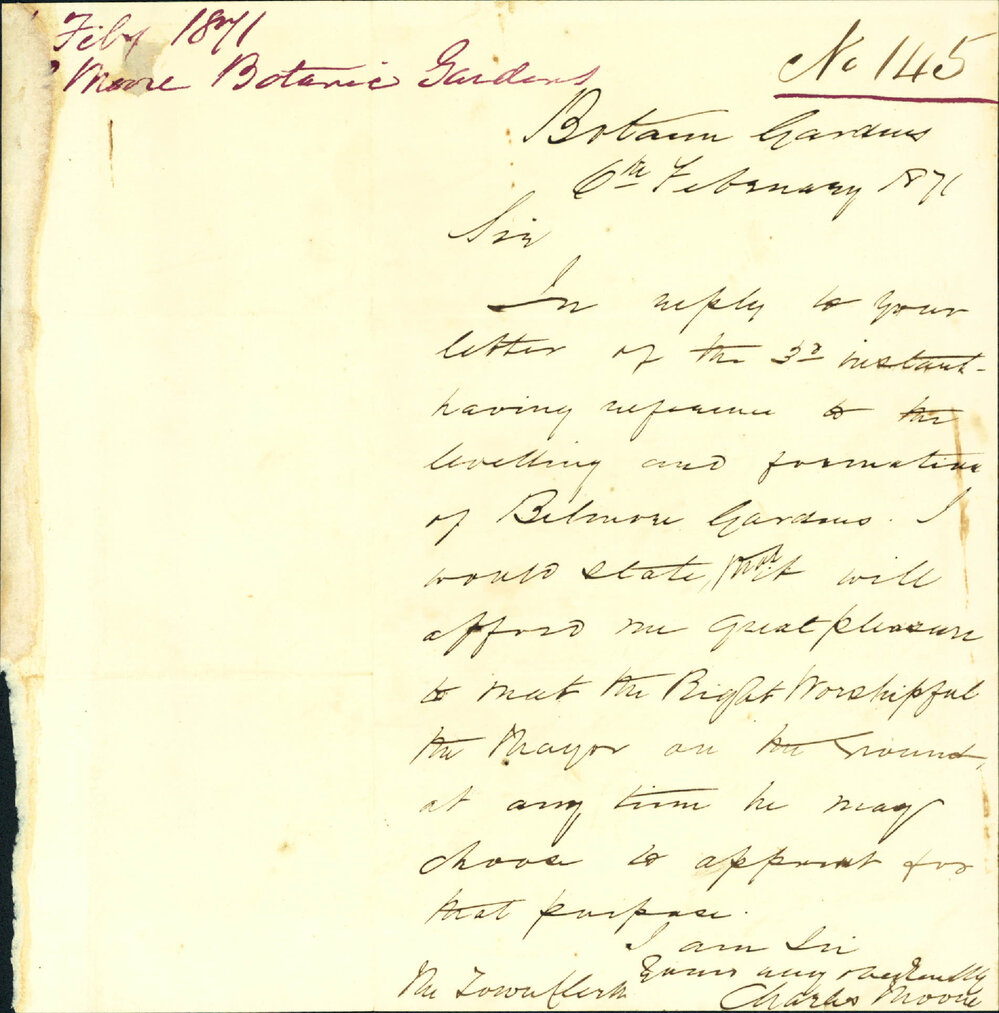 Feby 1871
Moore Botanic Gardens
No 145
Botanic Gardens
6th February 1871
Sir
In reply to your
letter of the 3rd instant
having reference to the
levelling and formation
of Belmore Gardens. I
would state, that it will
afford me great pleasure
to meet the Right Worshipful
the Mayor on the Ground,
at any time he may
choose to appoint for
that purpose.
I am Sir
Yours very
The Town Clerk
Charles Moore